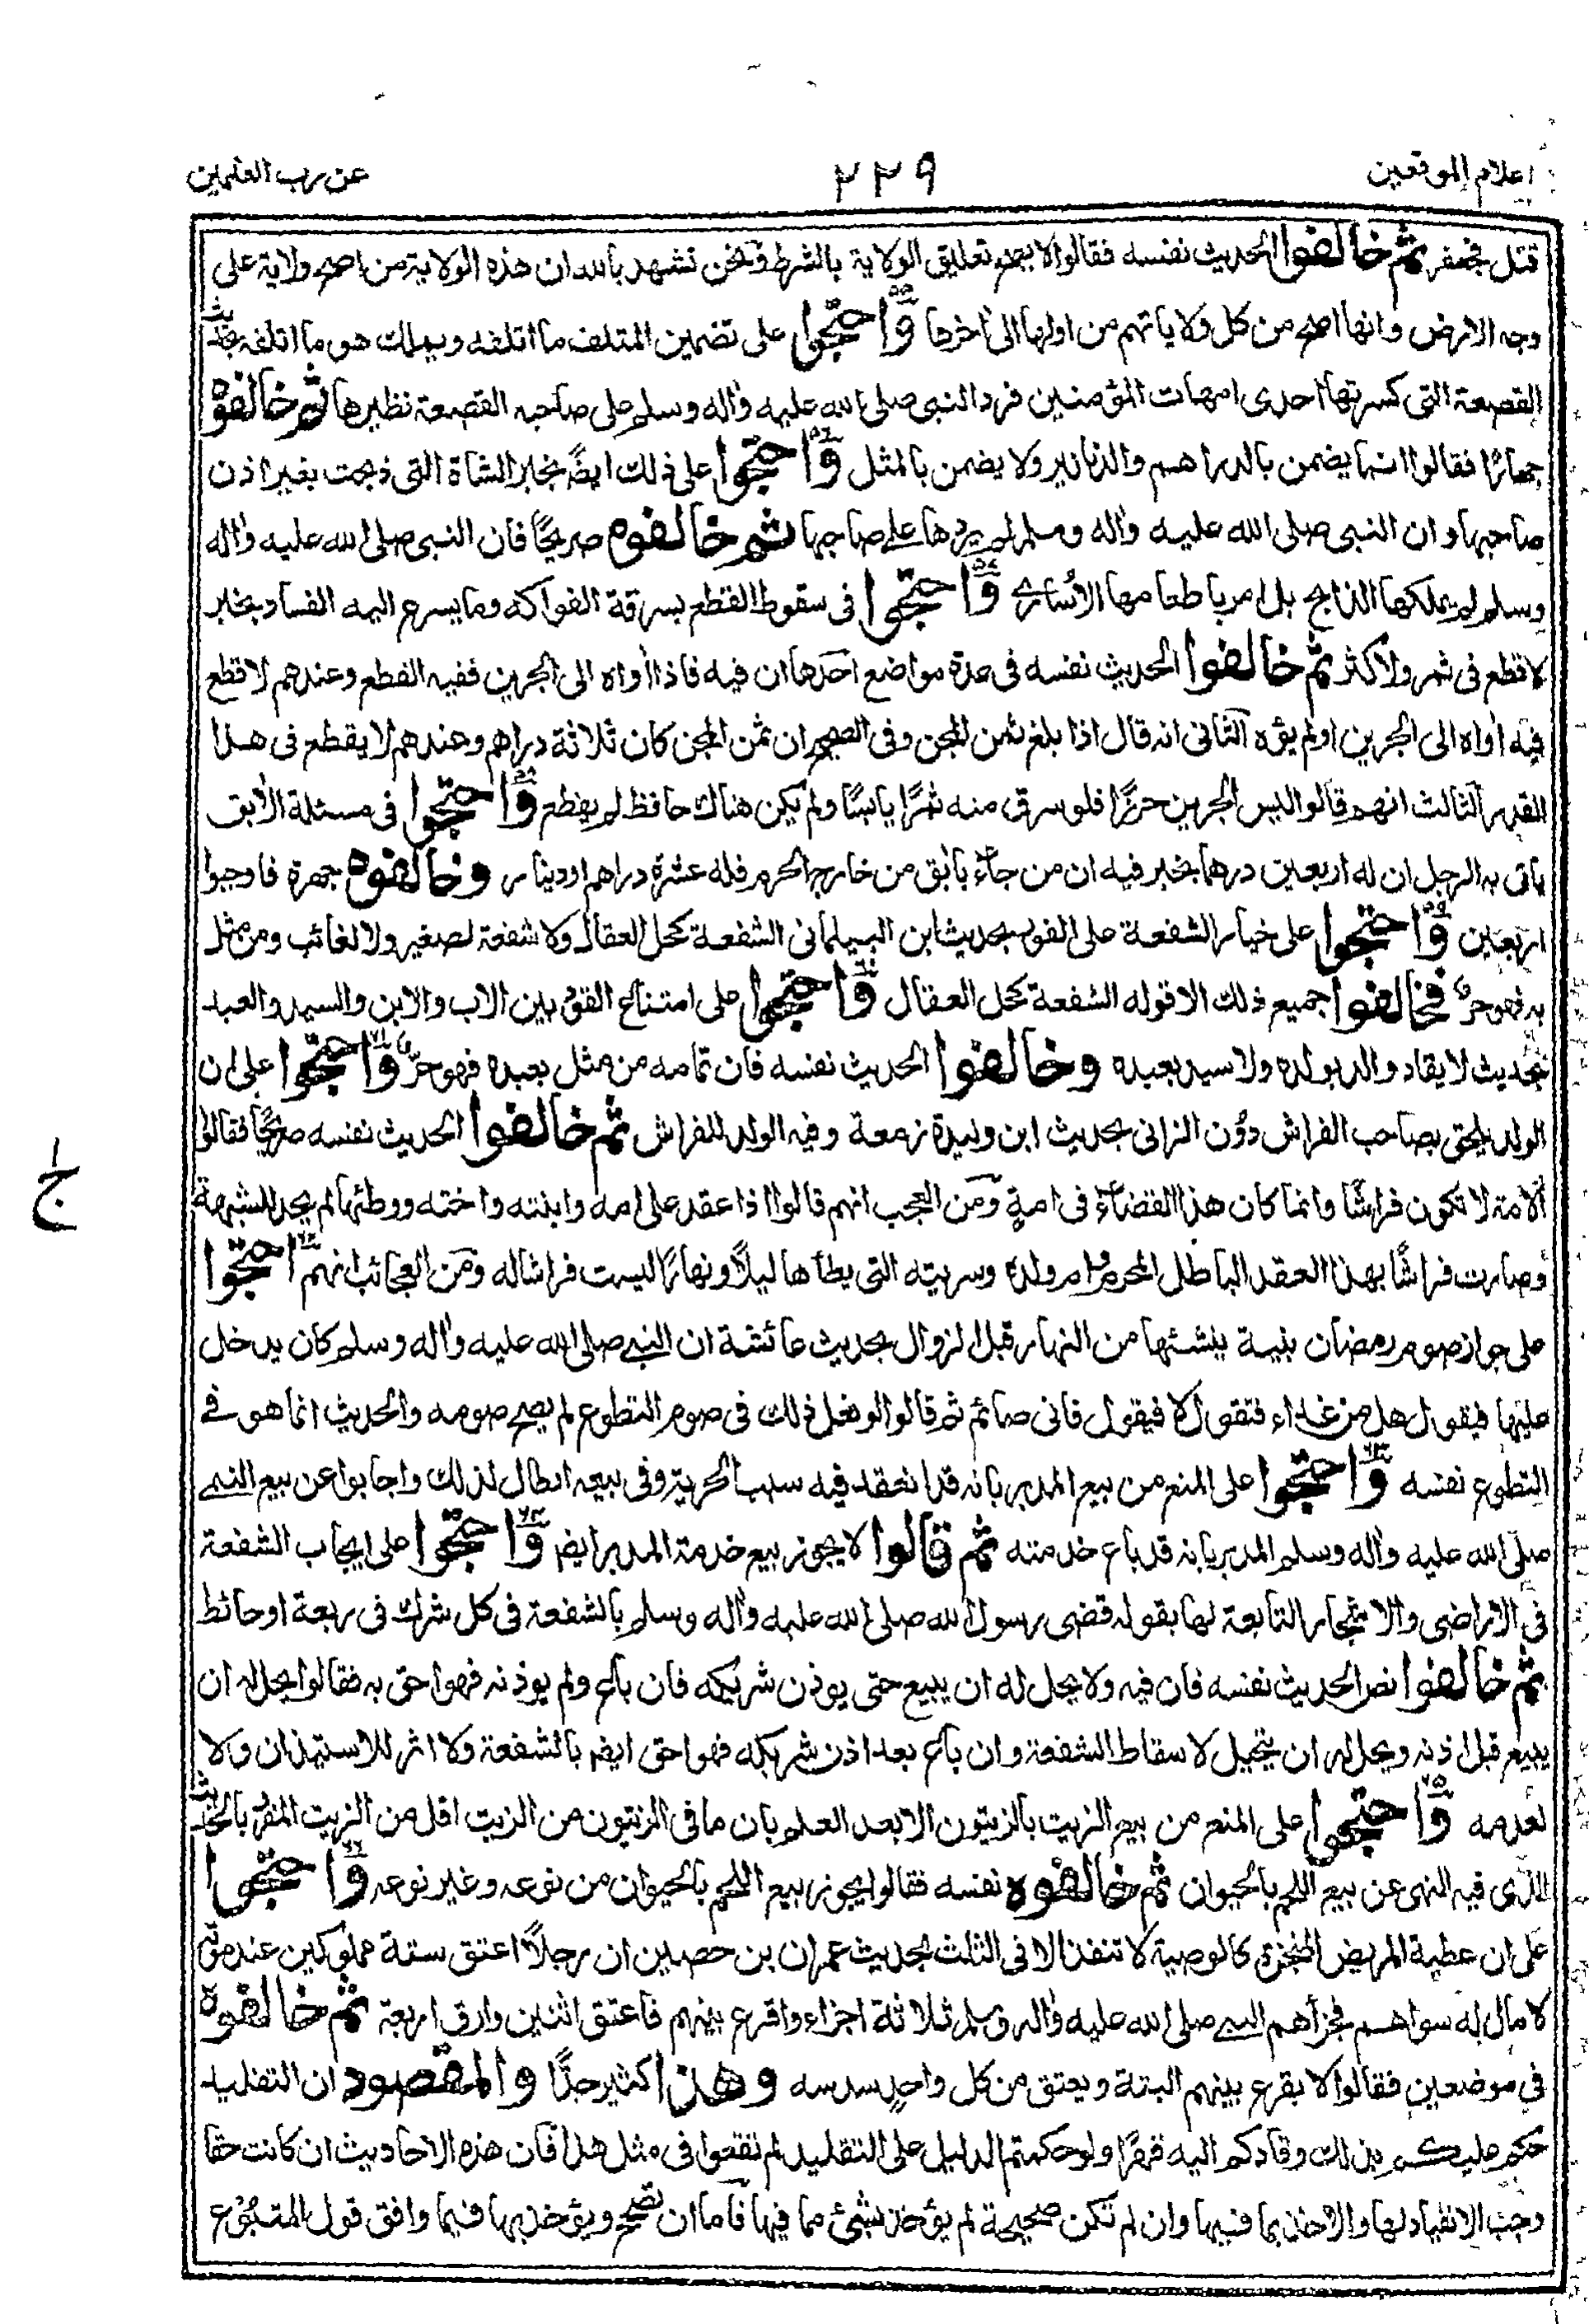 اعلام الموقعين
٢٢٩
عن رب العٰلمين
قتل فجعفر ثم خالفوا الحديث نفسه فقالوا لا يصح تعليق الولاية بالشرط ونحن نشهد بالله ان هذه الولاية من اصح ولاية على
وجه الارض وانها اصح من كل ولاياتهم من اولها الى اٰخرها واحتجوا على تضمين المتلف ما اتلفه ويملك هو ما اتلفه بحديث
القصعة التى كسرتها احدى امهات المؤمنين فرد النبى صلى الله عليه واٰله وسلم على صاحبه القصعة نظيرها ثم خالفوه
جهارًا فقالوا انما يضمن بالدراهم والدنانير ولا يضمن بالمثل واحتجوا على ذلك ايضًا بخبر الشاة التى ذبحت بغير اذن
صاحبها وان النبى صلى الله عليه واٰله وسلم لم يردها على صاحبها ثم خالفوه صريحًا فان النبى صلى الله عليه واٰله
وسلم لم يملكها الذابح بل امر باطعامها الأسارى واحتجوا فى سقوط القطع بسرقة الفواكه وما يسرع اليه الفساد بخبر
لا قطع فى ثمر ولا كثر ثم خالفوا الحديث نفسه فى عدة مواضع احدها ان فيه فاذا اٰواه الى الجرين ففيه القطع وعندهم لا قطع
فيه اٰواه الى الجرين اولم يؤه الثانى انه قال اذا بلغ ثمن المجن وفى الصحيح ان ثمن المجن كان ثلاثة دراهم وعندهم لا يقطع فى هذا
القدر الثالث انهم قالوا ليس الجرين حرزًا فلو سرق منه ثمرًا يابسًا ولم يكن هناك حافظ لم يقطع واحتجوا فى مسئلة الاٰبق
ياتى به الرجل ان له اربعين درهما بخبر فيه ان من جاء باٰبق من خارج الحرم فله عشرة دراهم او دينار وخالفوه جهرة فاوجبوا
اربعين واحتجوا على خيار الشفعة على الفور بحديث ابن البيلمانى الشفعة كحل العقال ولا شفعة لصغير ولا لغائب ومن مثل
به فهو حرٌ فخالفوا جميع ذلك الا قوله الشفعة كحل العقال واحتجوا على امتناع القود بين الاب والابن والسيد والعبد
بحديث لا يقاد والد بولده ولا سيد بعبده وخالفوا الحديث نفسه فان تمامه من مثل بعبده فهو حرٌ واحتجوا على ان
الولد يلحق بصاحب الفراش دون الزانى بحديث ابن وليدة زمعة وفيه الولد للفراش ثم خالفوا الحديث نفسه صريحًا فقالوا
الامة لا تكون فراشًا وانما كان هذا القضاء فى امةٍ ومن العجب انهم قالوا اذا عقد على امه وابنته واخته ووطئها لم يحد للشبهة
وصارت فراشًا بهذا العقد الباطل المحرم وام ولده وسريته التى يطأها ليلًا ونهارًا ليست فراشا له ومن العجائب انهم احتجوا
على جواز صوم رمضان بنية ينشئها من النهار قبل الزوال بحديث عائشة ان النبى صلى الله عليه واٰله وسلم كان يدخل
عليها فيقول هل من غداء فتقول لا فيقول فانى صائم ثم قالوا لو فعل ذلك فى صوم التطوع لم يصح صومه والحديث انما هو فى
التطوع نفسه واحتجوا على المنع من بيع المدبر بانه قد انعقد فيه سبب الحرية وفى بيعه ابطال لذلك واجابوا عن بيع النبى
صلى الله عليه واٰله وسلم المدبر بانه قد باع خدمته ثم قالوا لا يجوز بيع خدمة المدبر ايضا واحتجوا على ايجاب الشفعة
فى الاراضى والاشجار التابعة لها بقوله قضى رسول الله صلى الله عليه واٰله وسلم بالشفعة فى كل شرك فى ربعة او حائط
ثم خالفوا نص الحديث نفسه فان فيه ولا يحل له ان يبيع حتى يوذن شريكه فان باع ولم يوذنه فهو احق به فقالوا يحل له ان
يبيع قبل اذنه ويحل له ان يتحيل لاسقاط الشفعة وان باع بعد اذن شريكه فهو احق ايضا بالشفعة ولا اثر للاستيذان ولا
لعدمه واحتجوا على المنع من بيع الزيت بالزيتون الا بعد العلم بان ما فى الزيتون من الزيت اقل من الزيت المفرد بالحديث
الذى فيه النهى عن بيع اللحم بالحيوان ثم خالفوه نفسه فقالوا يجوز بيع اللحم بالحيوان من نوعه وغير نوعه واحتجوا
على ان عطية المريض المنجزة كالوصية لا تنفذ الا فى الثلث بحديث عمران بن حصين ان رجلًا اعتق ستة مملوكين عند موته
لا مال له سواهم فجزأهم النبى صلى الله عليه واٰله وسلم ثلاثة اجزاء واقرع بينهم فاعتق اثنين وارق اربعة ثم خالفوه
فى موضعين فقالوا لا يقرع بينهم البتة ويعتق من كل واحدٍ سدسه وهذا كثير جدًّا والمقصود ان التقليد
حكم عليكم بذلك وقادكم اليه قهرًا ولو حكمتم الدليل على التقليد لم تقعوا فى مثل هذا فان هذه الاحاديث ان كانت حقا
وجب الانقياد لها والاخذ بما فيها وان لم تكن صحيحة لم يؤخذ بشئ مما فيها فاما ان تصح ويؤخذ بها فيما وافق قول المتبوع